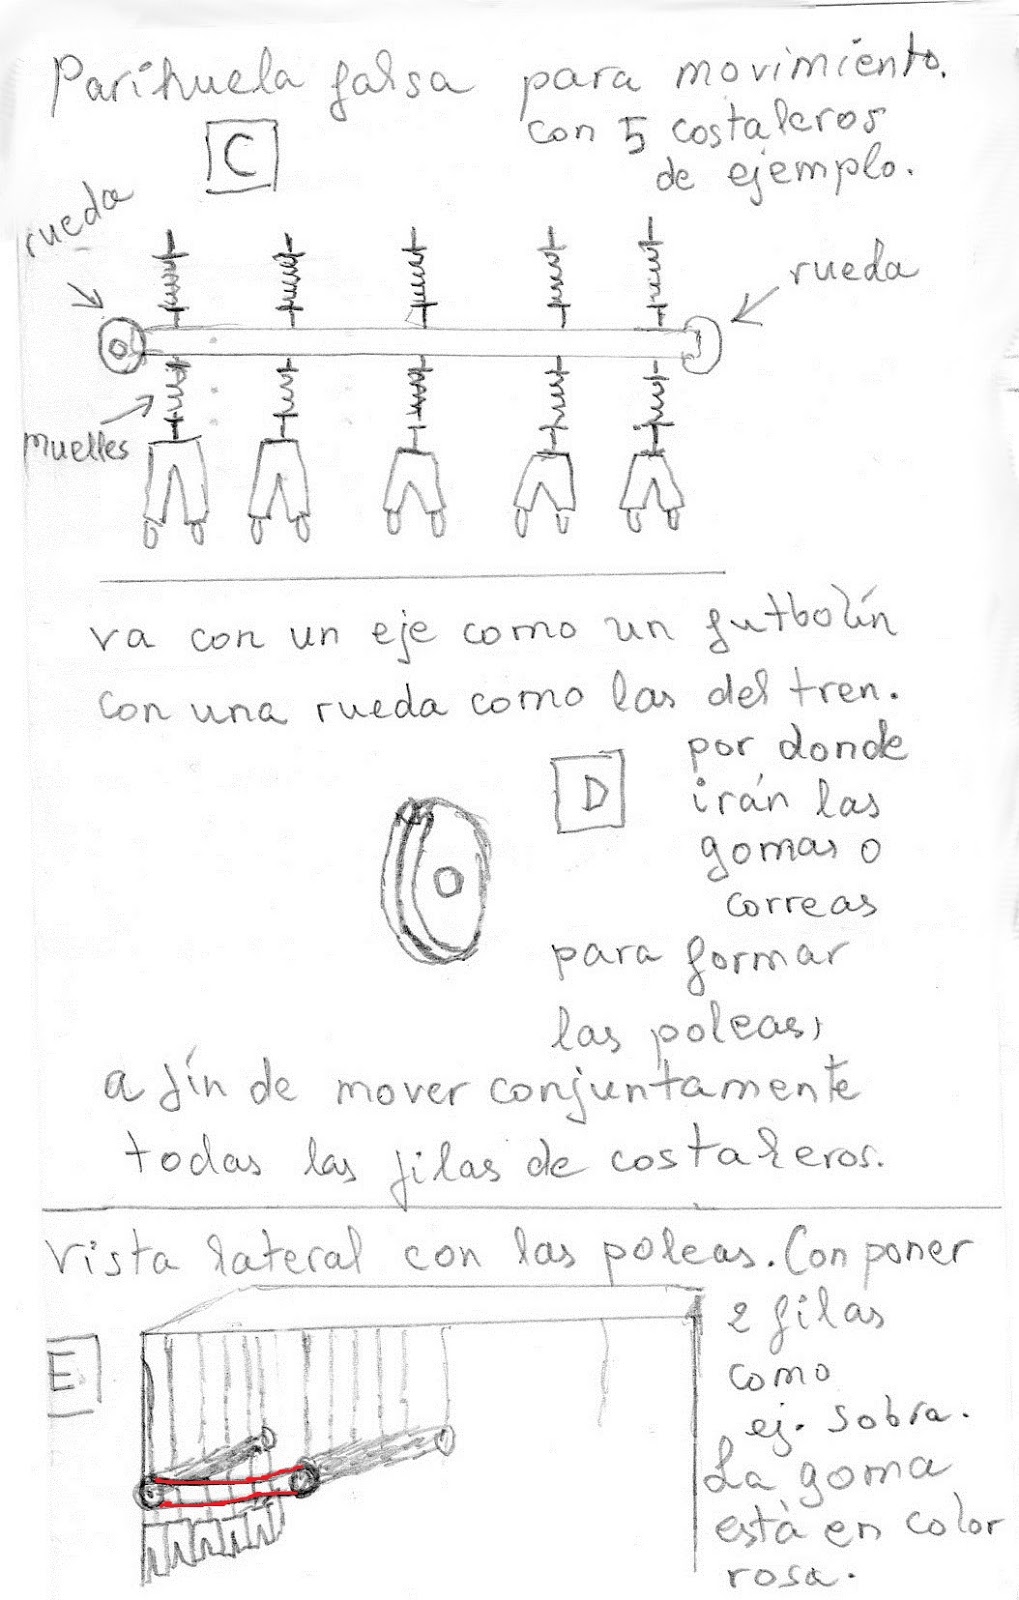 Parihuela falsa para movimiento.
con 5 costaleros
de ejemplo.
C
rueda
rueda
muelles
va con un eje como un futbolín
con una rueda como las del tren.
D
por donde
irán las
gomas o
correas
para formar
las poleas,
a fín de mover conjuntamente
todas las filas de costaleros.
Vista lateral con las poleas. Con poner
2 filas
como
ej. sobra.
E
La goma
está en color
rosa.